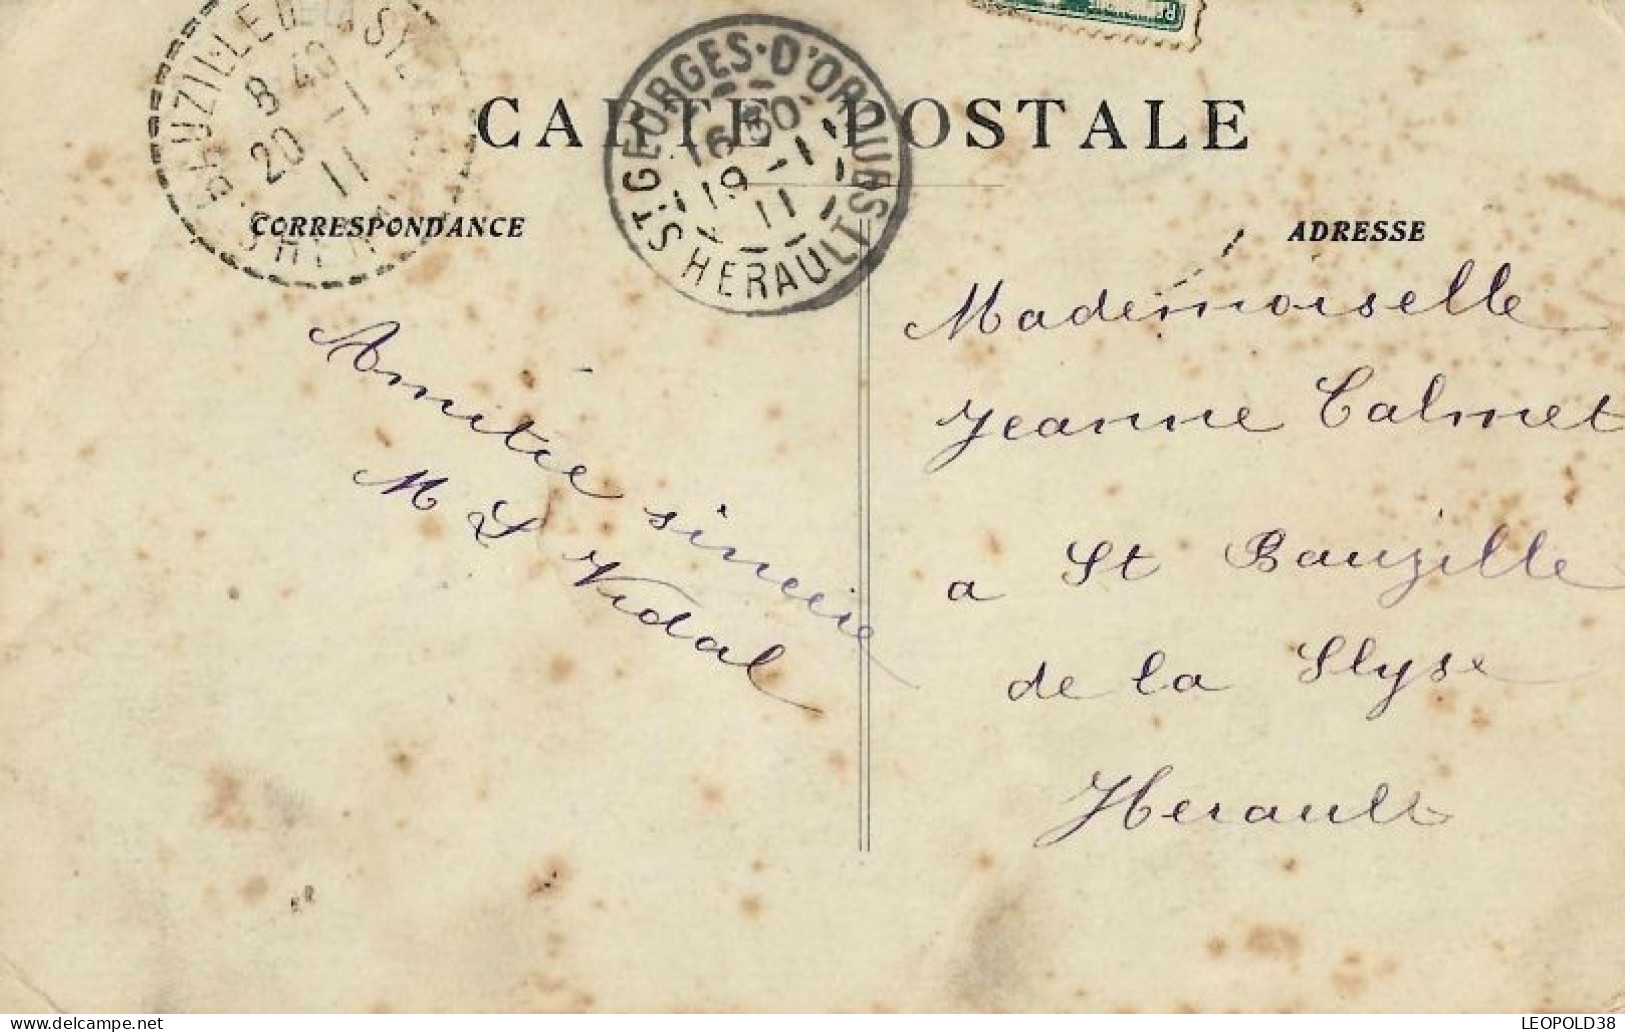 BAUZILLE DE LA SYLVE
8 40
20 -1
11
HERAULT
ST GEORGES-D'ORQUES
16 30
19 -1
11
HERAULT
CARTE POSTALE
CORRESPONDANCE
ADRESSE
Amitié sincère
M L Vidal
Mademoiselle
Jeanne Calmet
a St Bauzille
de la Slyse
Herault
LEOPOLD38